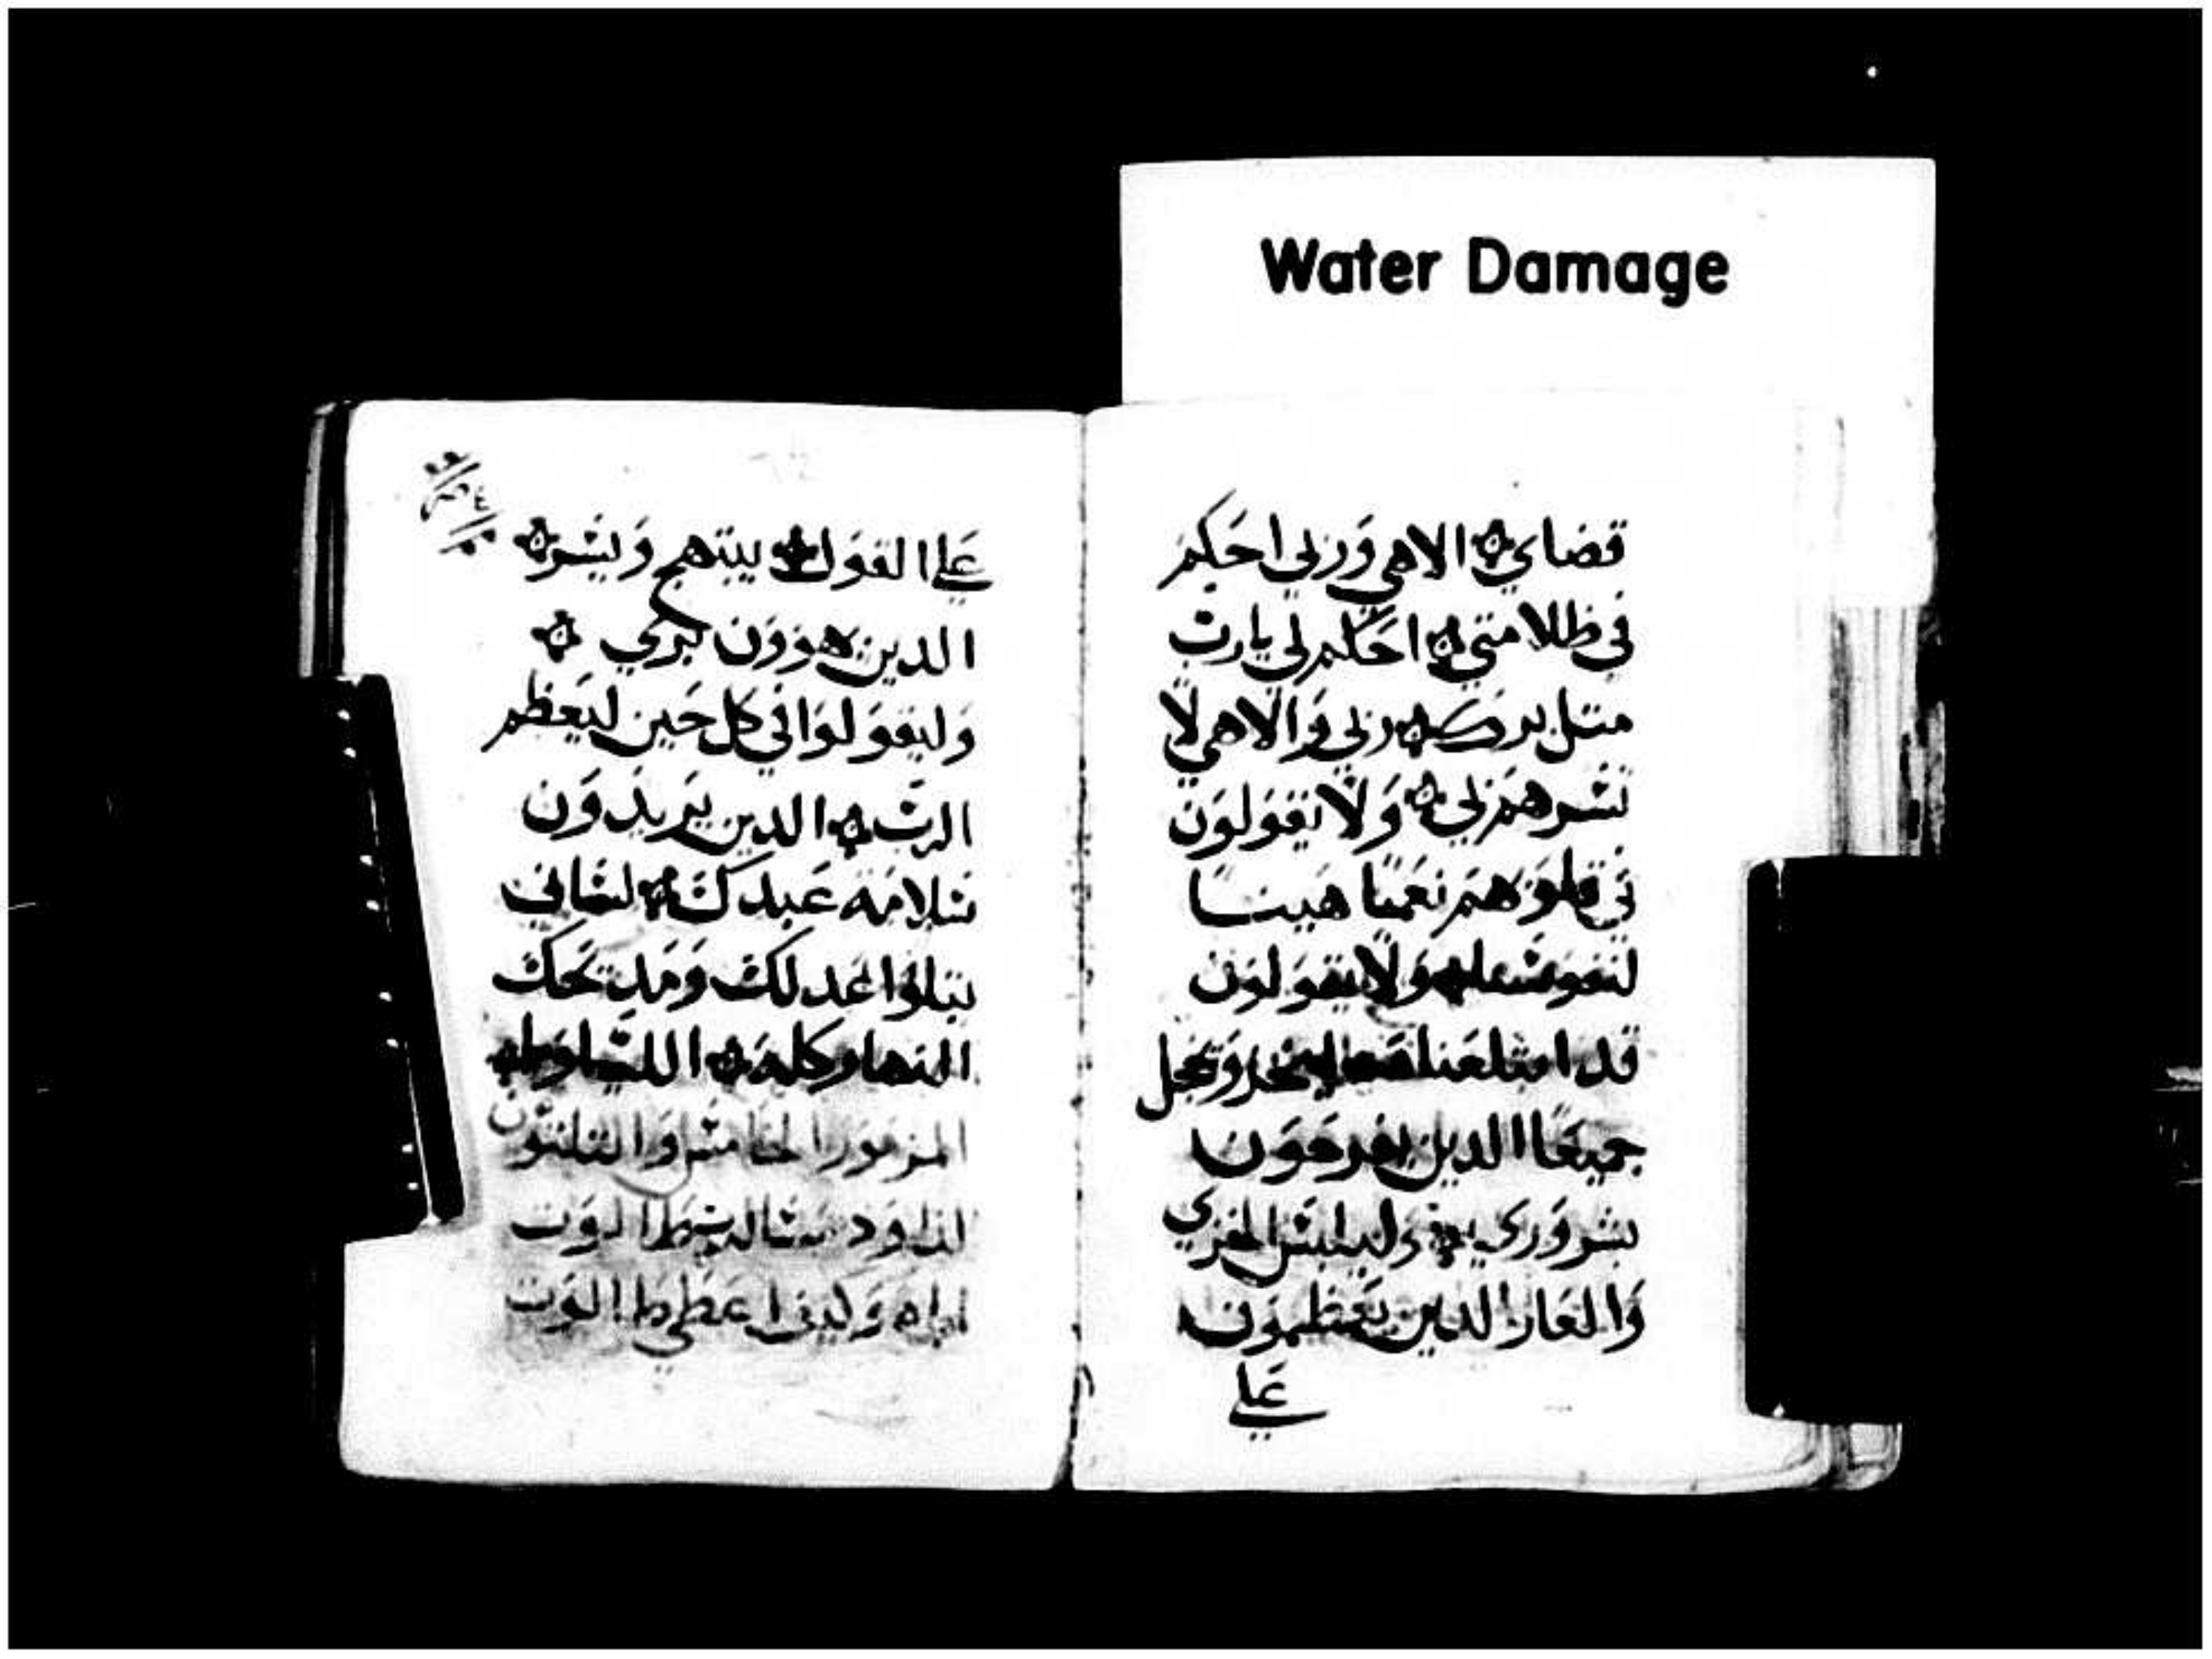 Water Damage
قضاي الاهي وربي احكم
في ظلامتي احكم لي يارب
متل برك ربي والاهي لا
تسرهم بي ولا يقولون
في قلوبهم نعما هينا
لنفوسنا ولا يقولون
قد ابتلعناه ليخز ويخجل
جميعا الدين يفرحون
بشروري وليلبس الخزي
والعار الدين يعظمون
علي
علي القول يبتهج ويسر
الدين يهوون بري
وليقولوا في كل حين ليعظم
الرب الدين يريدون
سلامة عبدك لساني
يتلوا عدلك ومدتحك
النهار كله الليلويا
المزمور الخامس والتلتون
لداود